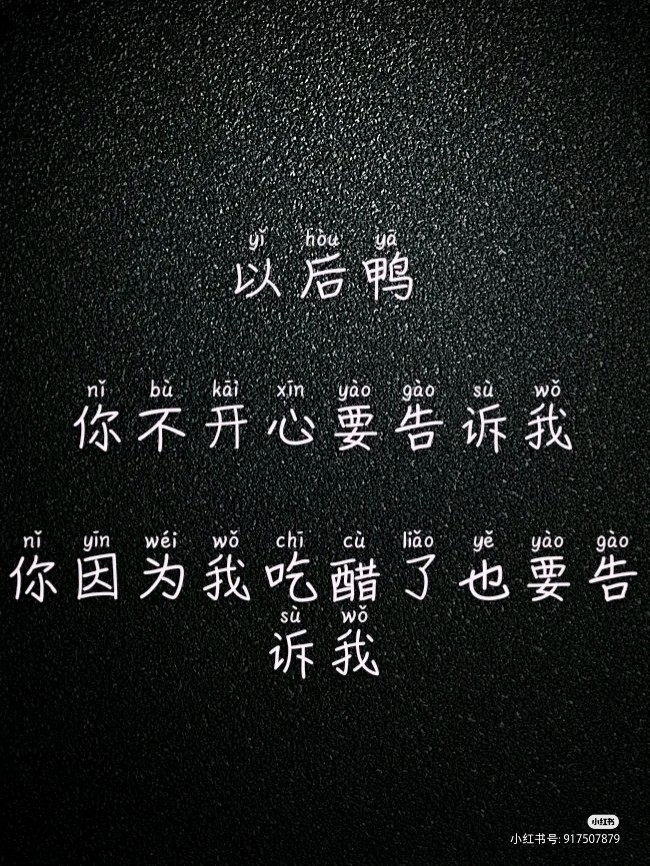 yǐ hòu yā
以后鸭
nǐ bù kāi xīn yào gào sù wǒ
你不开心要告诉我
nǐ yīn wéi wǒ chī cù liǎo yě yào gào
你因为我吃醋了也要告
sù wǒ
诉我
小红书
小红书号: 917507879